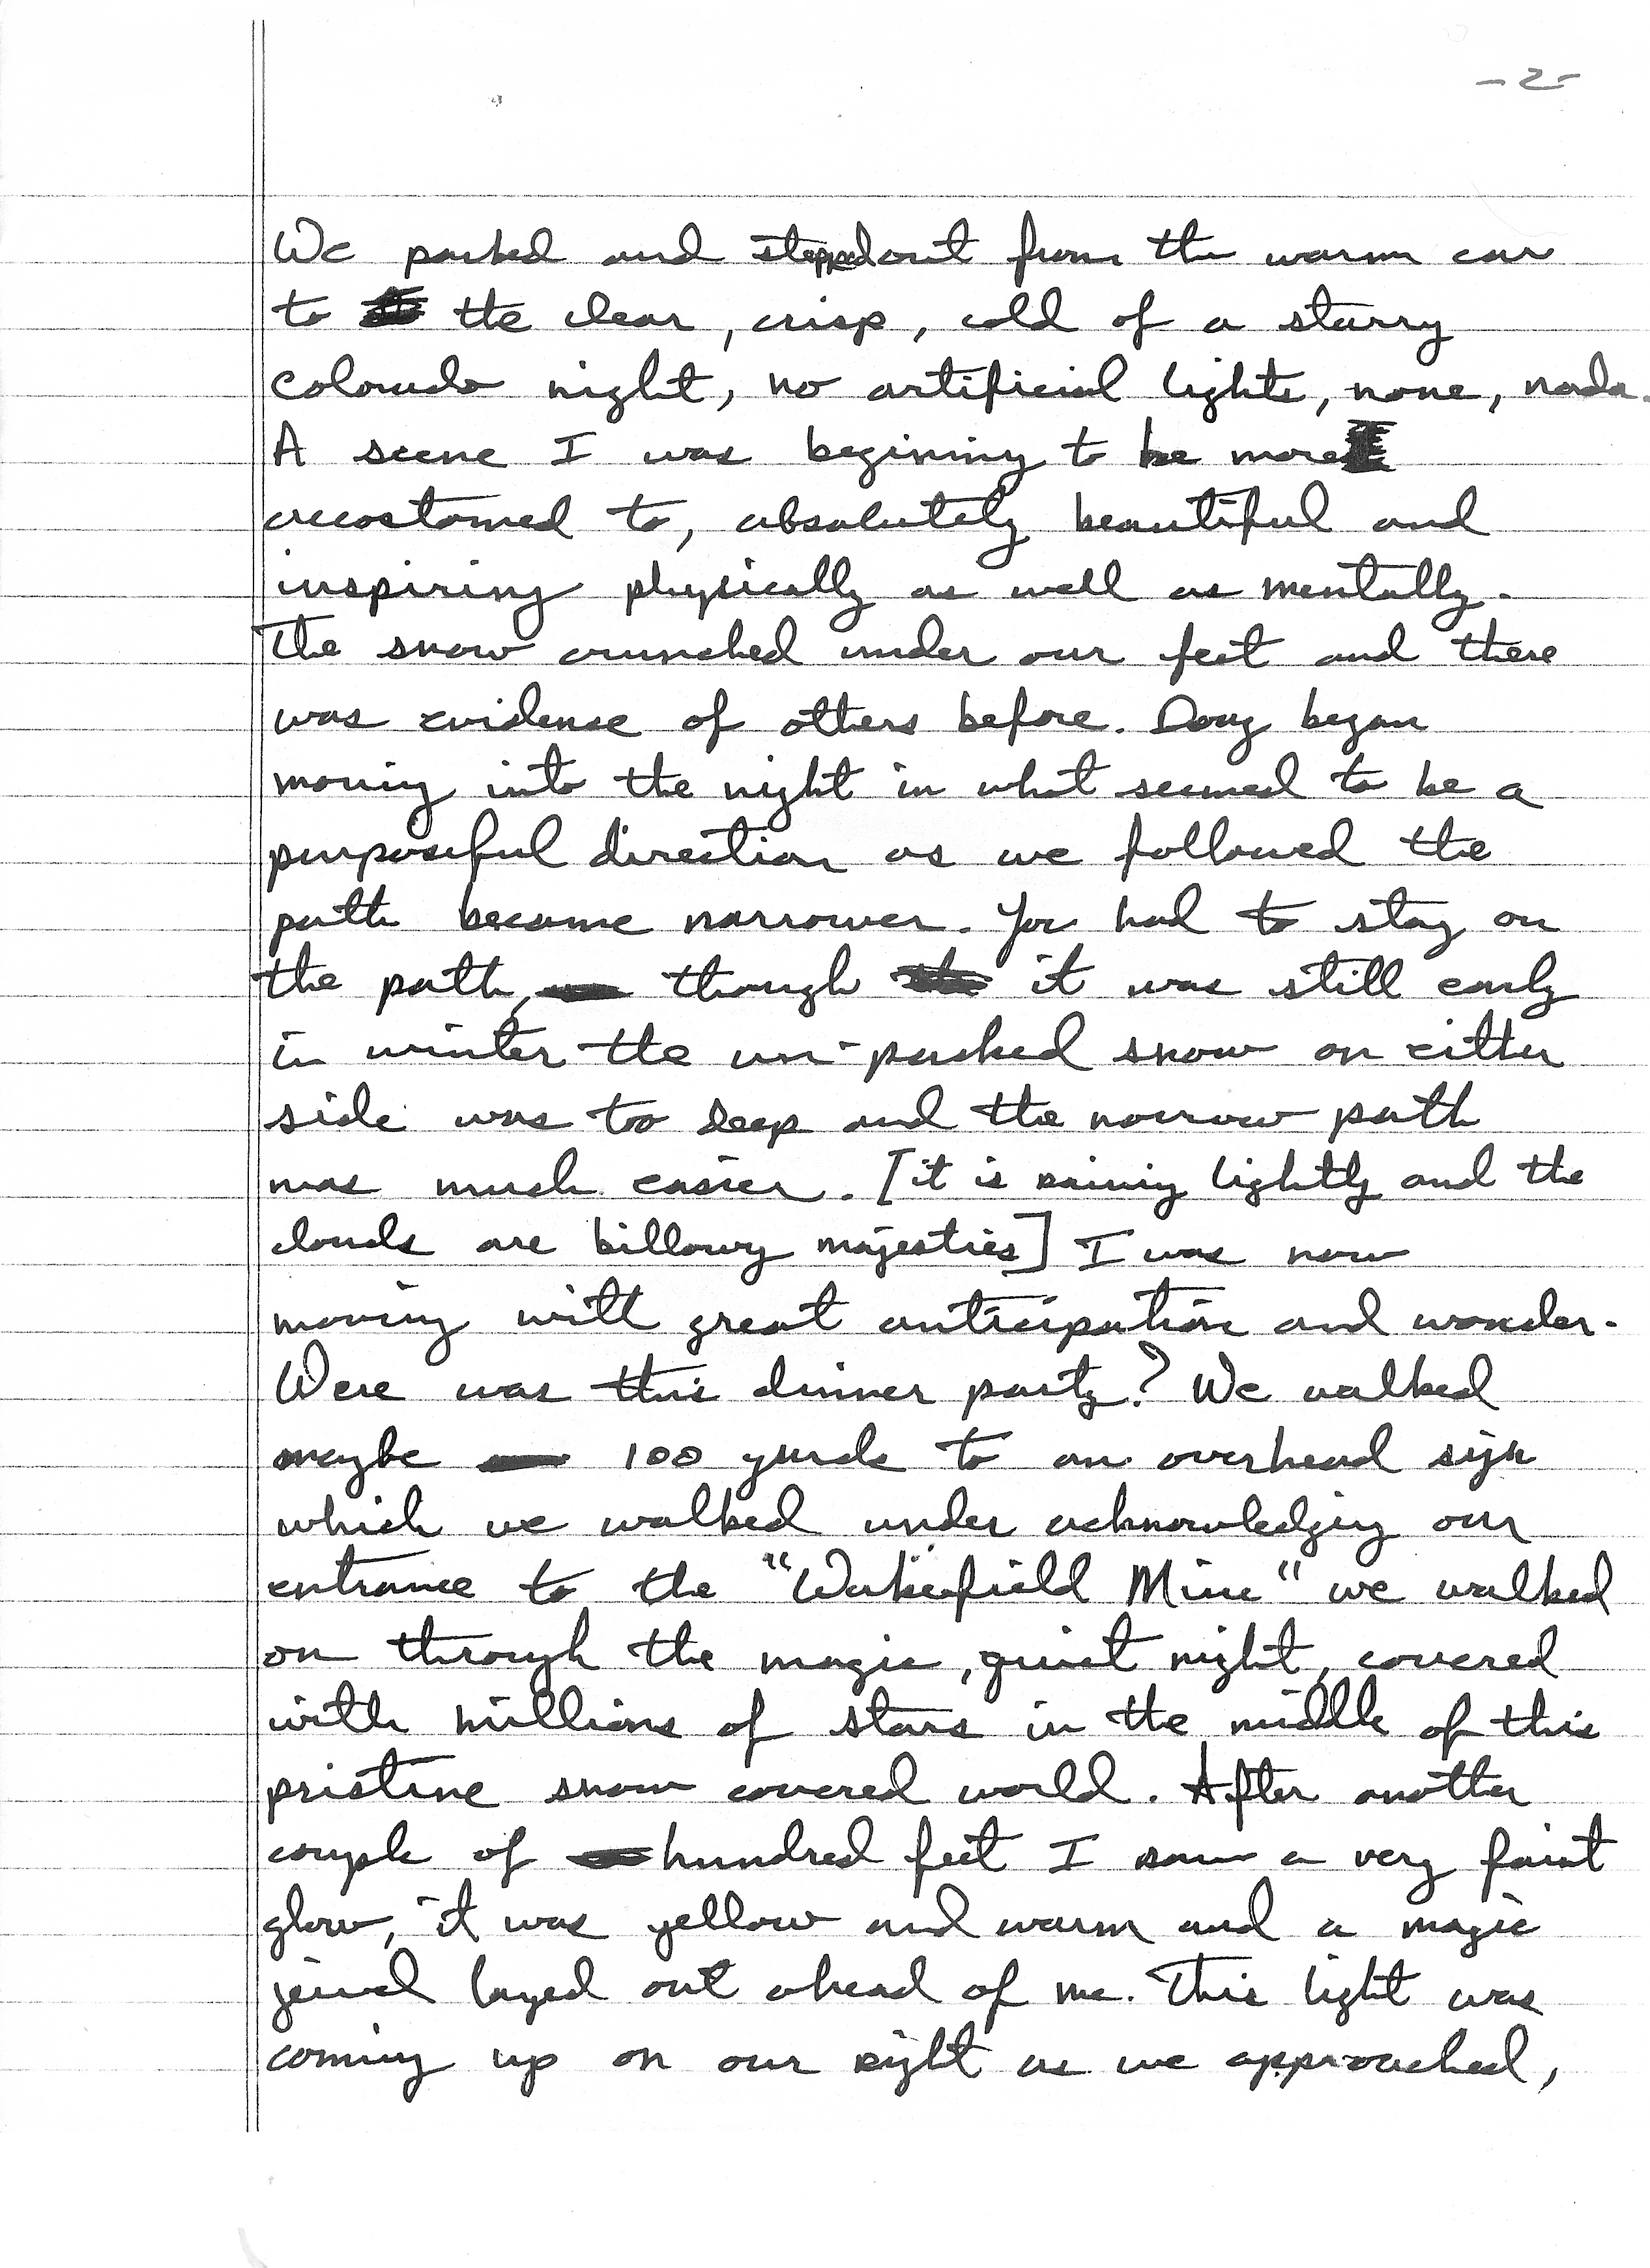 -2-
We parked and stepped out from the warm car
to the clear, crisp, cold of a starry
Colorado night, no artificial lights, none, nada.
A scene I was begining to be more
accostomed to, absolutely beautiful and
inspiring physically as well as mentally.
The snow crunched under our feet and there
was evidense of others before. Doug began
moving into the night in what seemed to be a
purposeful direction as we followed the
path became narrower. You had to stay on
the path, though it was still early
in winter the un-packed snow on either
side was too deep and the narrow path
was much easier. [it is raining lightly and the
clouds are billowy majesties] I was now
moving with great anticipation and wonder.
Were was this dinner party? We walked
maybe 100 yards to an overhead sign
which we walked under acknowledging our
entrance to the "Wakefield Mine" we walked
on through the magic, quiet night, covered
with millions of stars in the middle of this
pristine snow covered world. After another
couple of hundred feet I saw a very faint
glow, it was yellow and warm and a magic
jewel layed out ahead of me. This light was
coming up on our right as we approached,